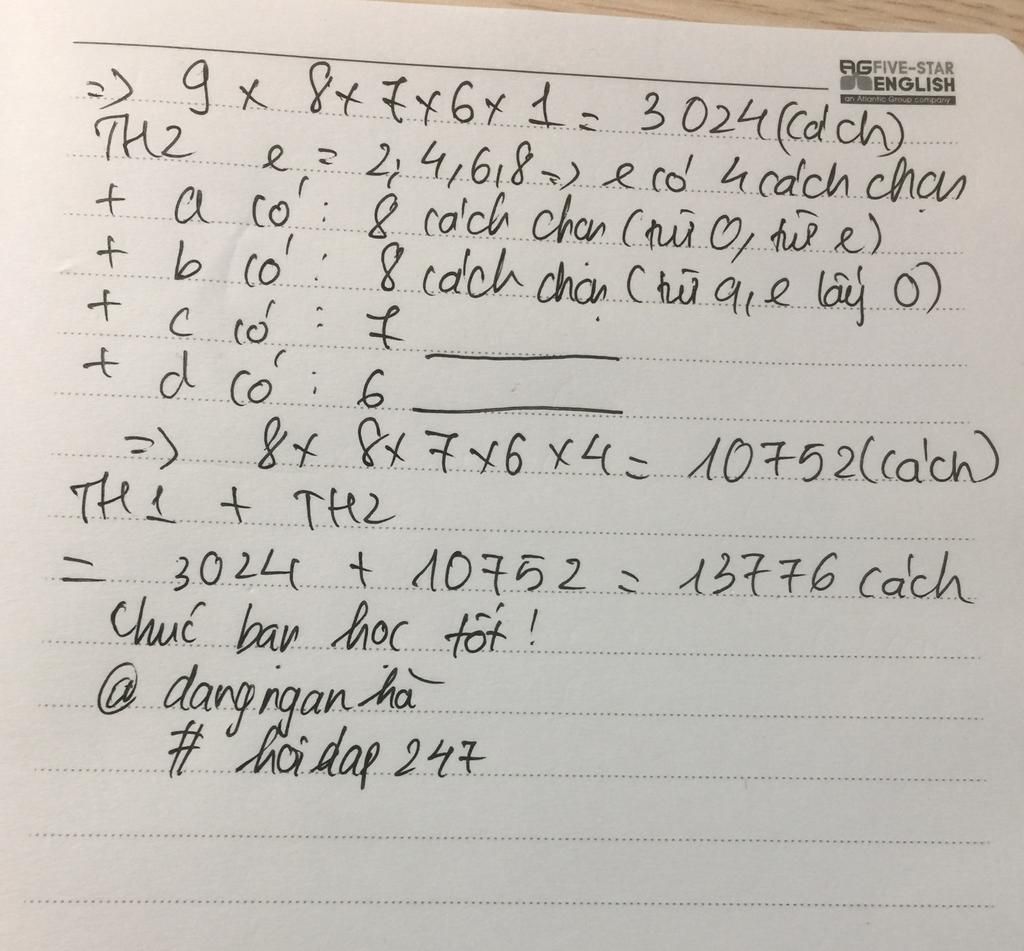 AG FIVE-STAR
ENGLISH
an Atlantic Group company
=> 9 x 8 x 7 x 6 x 1 = 3024 (cách)
TH2 e = 2, 4, 6, 8 => e có 4 cách chọn
+ a có : 8 cách chọn (trừ 0, trừ e)
+ b có : 8 cách chọn (trừ a, e lấy 0)
+ c có : 7 ____
+ d có : 6 ____
=> 8 x 8 x 7 x 6 x 4 = 10752 (cách)
TH1 + TH2
= 3024 + 10752 = 13776 cách
Chúc bạn học tốt !
@ dangngan hà
# hoidap 247